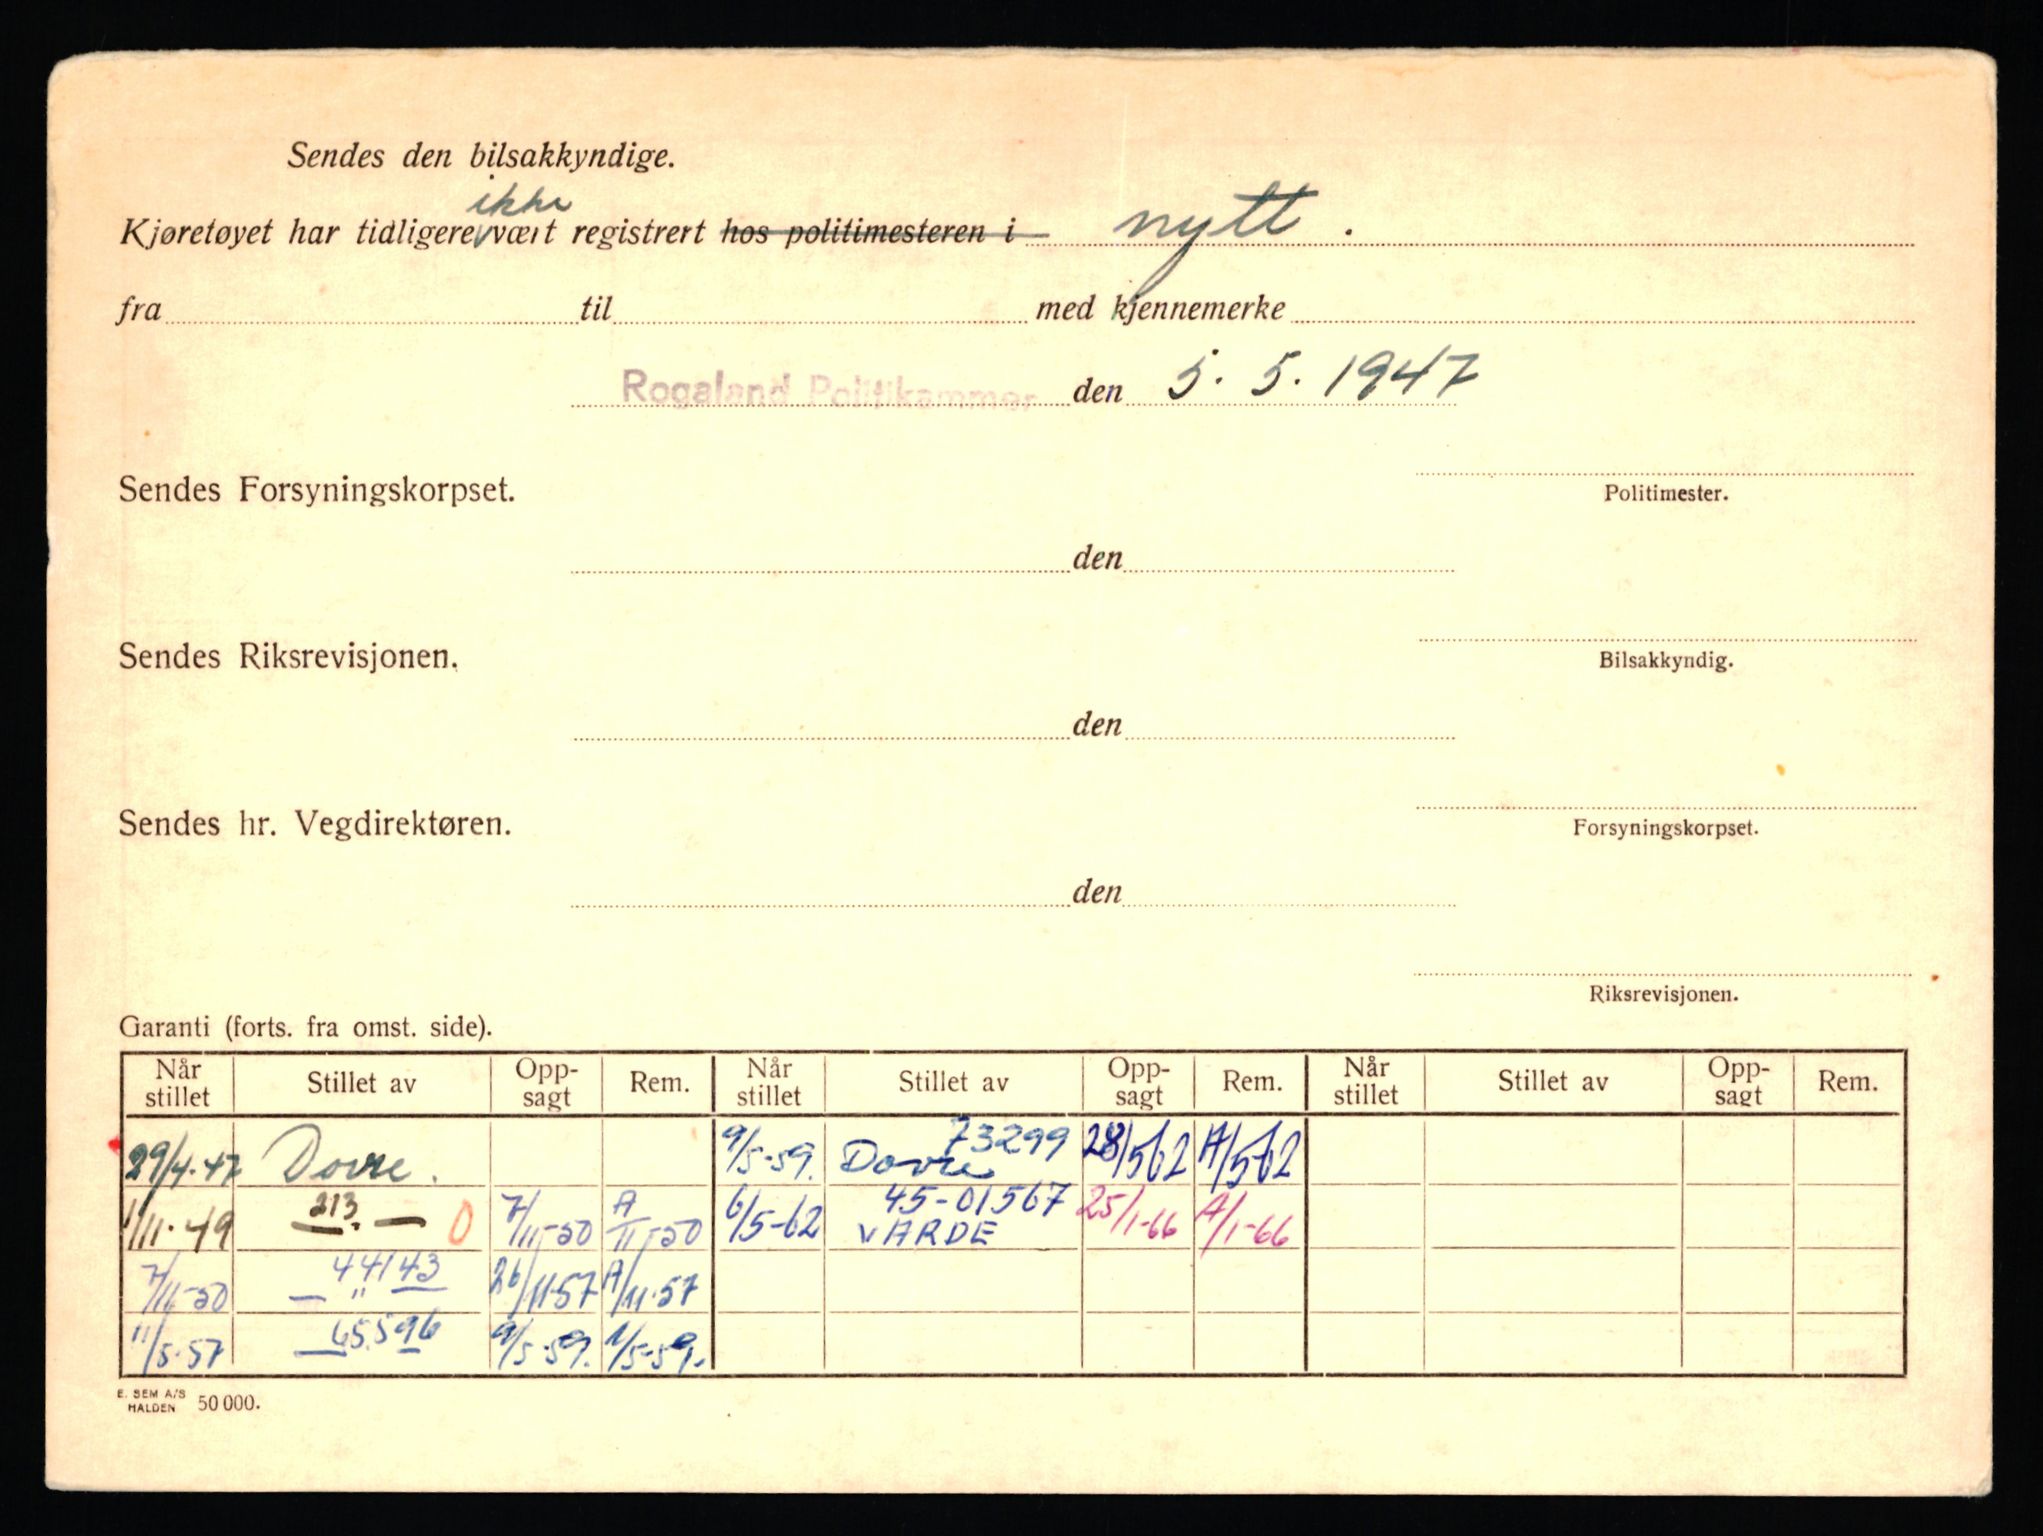 Sendes den bilsakkyndige.
ikke
Kjøretøyet har tidligere vært registrert hos politimesteren i nytt .
fra til med kjennemerke
Rogaland Politikammer den 5. 5. 1947
Sendes Forsyningskorpset.
Politimester.
den
Sendes Riksrevisjonen.
Bilsakkyndig.
den
Sendes hr. Vegdirektøren.
Forsyningskorpset.
den
Riksrevisjonen.
Garanti (forts. fra omst. side).
Når stillet Stillet av Opp-sagt Rem. Når stillet Stillet av Opp-sagt Rem. Når stillet Stillet av Opp-sagt Rem.
29/4-47 Dovre. 9/5-59. Dovre 73299 28/562 A/5-62
1/11-49 — 213. — 0 7/11-50 A/11-50 6/5-62 45-01567 VARDE 25/1-66 A/1-66
7/11-50 — " 44143 26/11-57 A/11-57
11/5-57 65.596 9/5-59. 1/5-59.
E. SEM A/S
HALDEN 50 000.